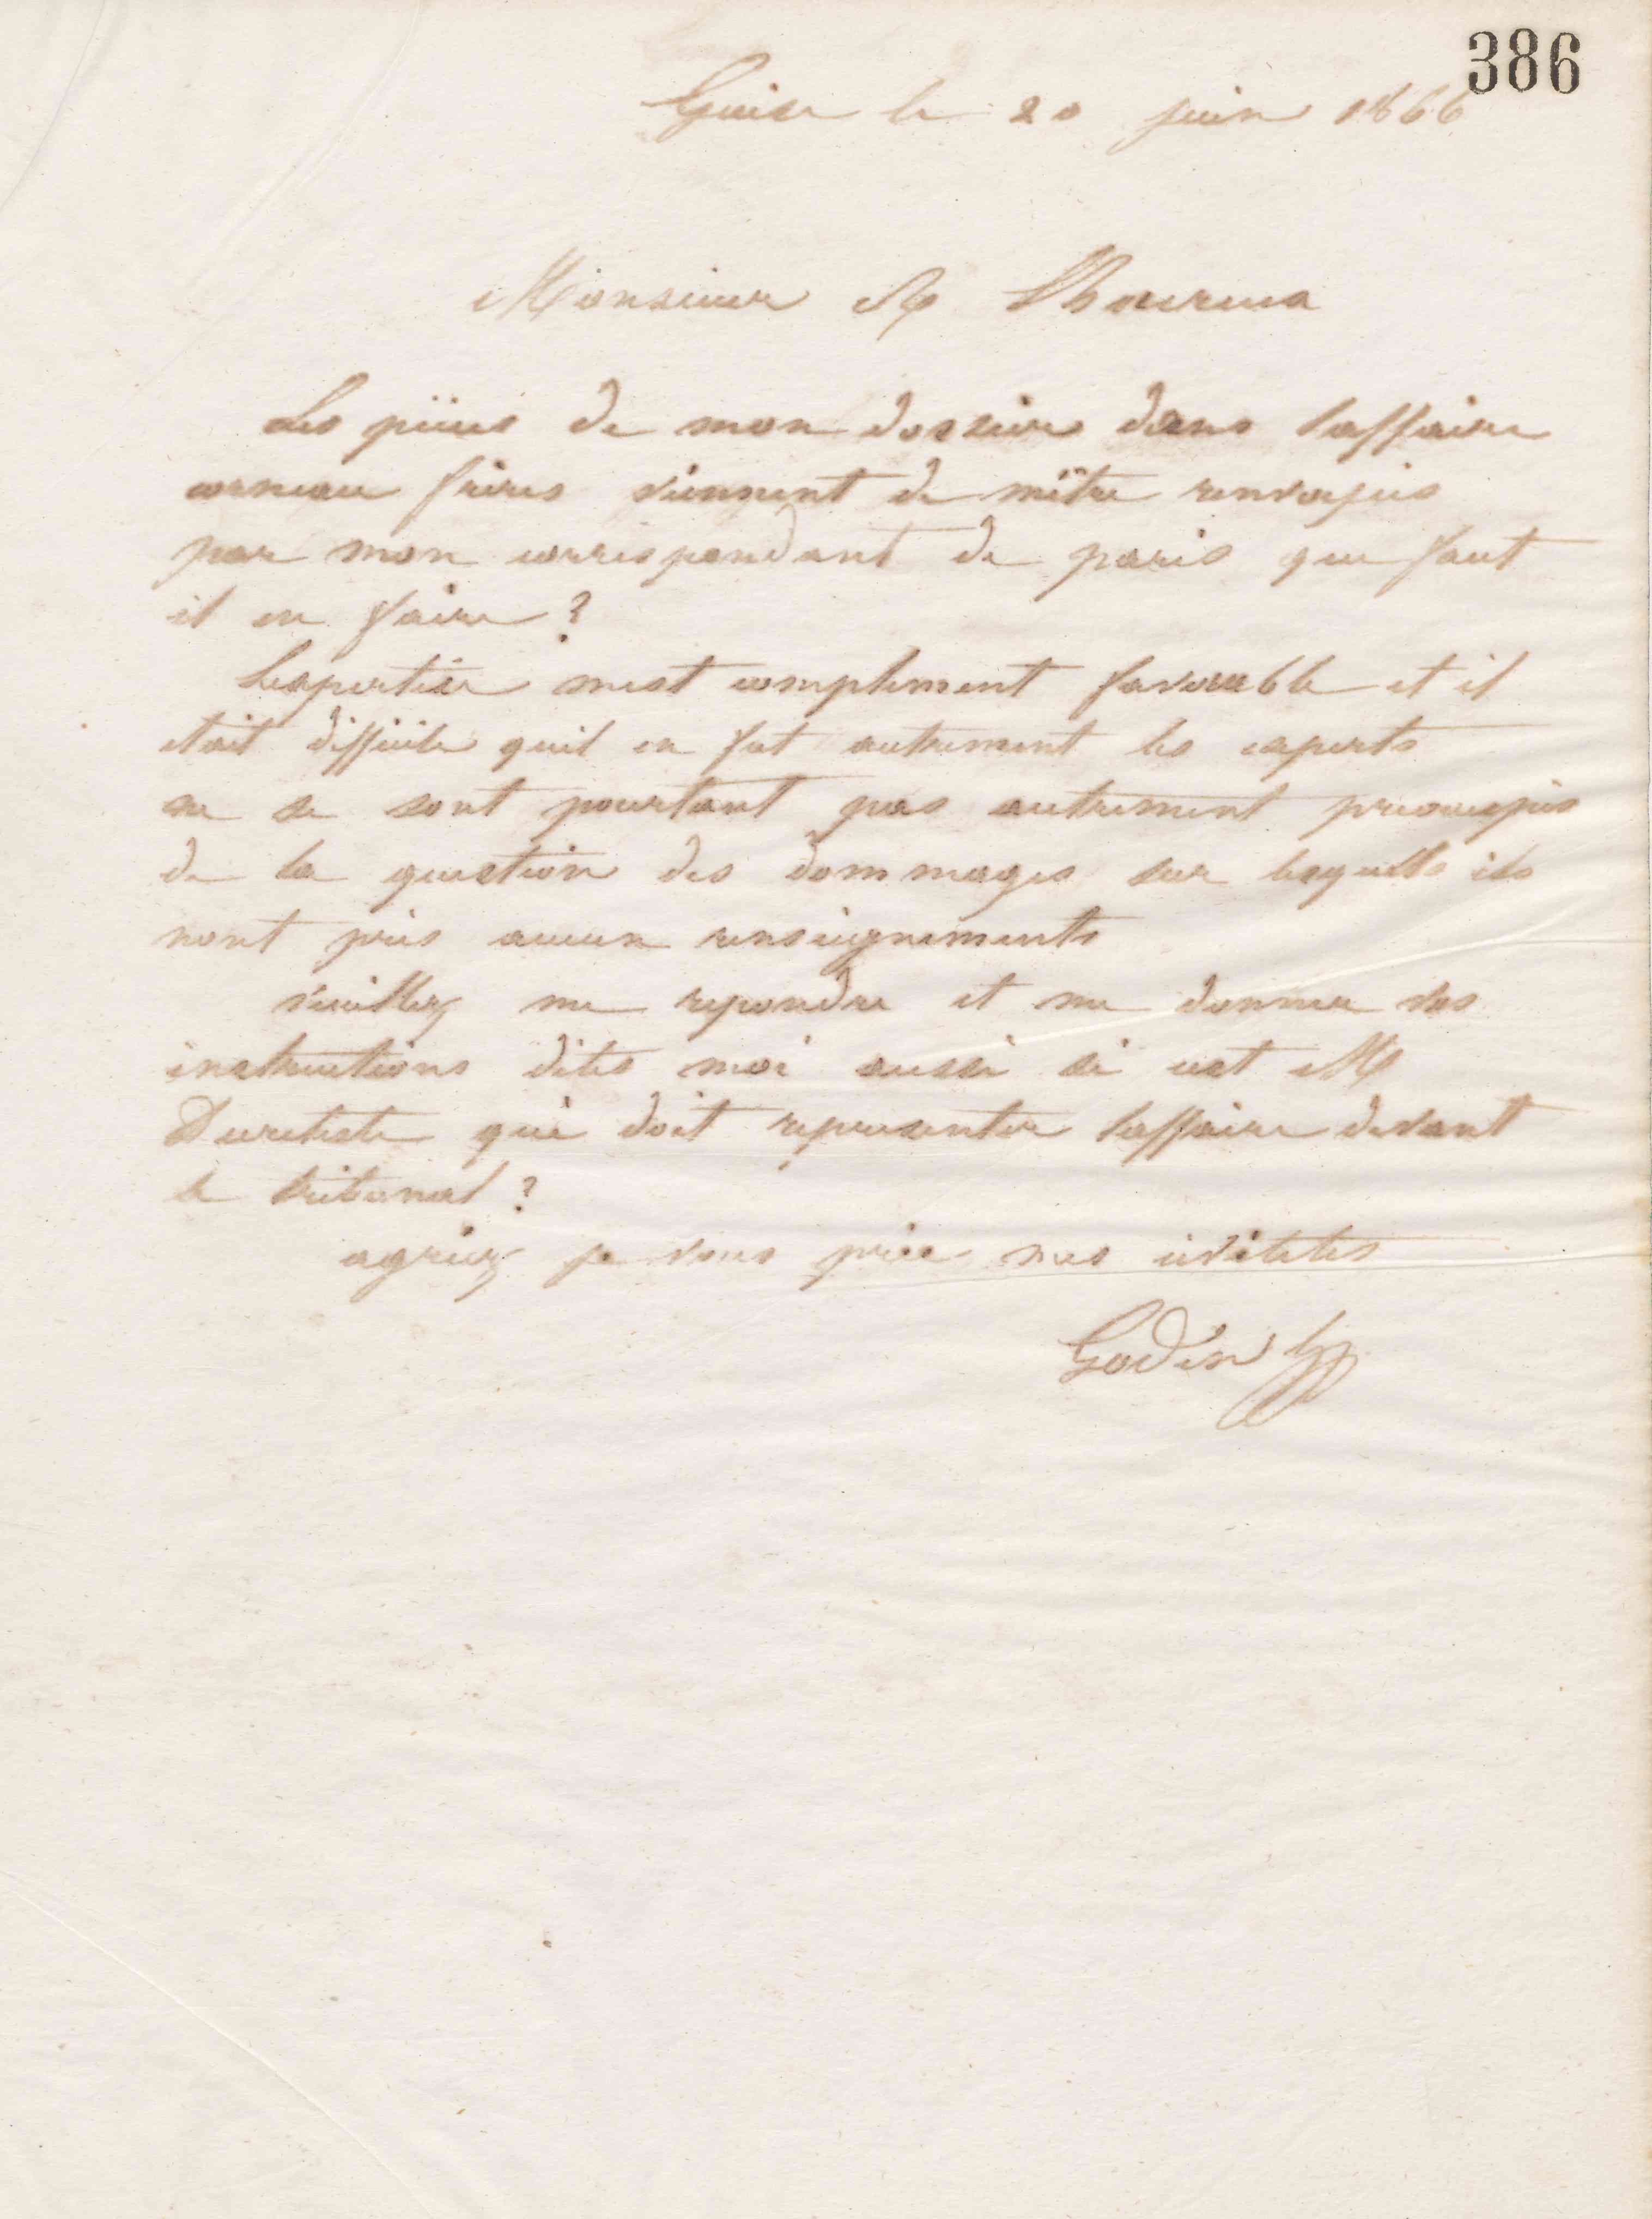 386
Guise le 20 juin 1866
Monsieur
Les pièces de mon dossier dans laffaire
corneau frères viennent de mêtre renvoyés
par mon correspondant de paris que faut
il en faire ?
Lexpertise mest complement favorable et il
etait difficile quil en fut autrement les experts
ne se sont pourtant pas autrement preoccupés
de la question des dommages sur lesquels ils
nont pris aucun renseignements
veuillez me repondre et me donner vos
instructions dites moi aussi si cest M
qui doit representer laffaire devant
le tribunal ?
agréez je vous prie mes civilités
Godin